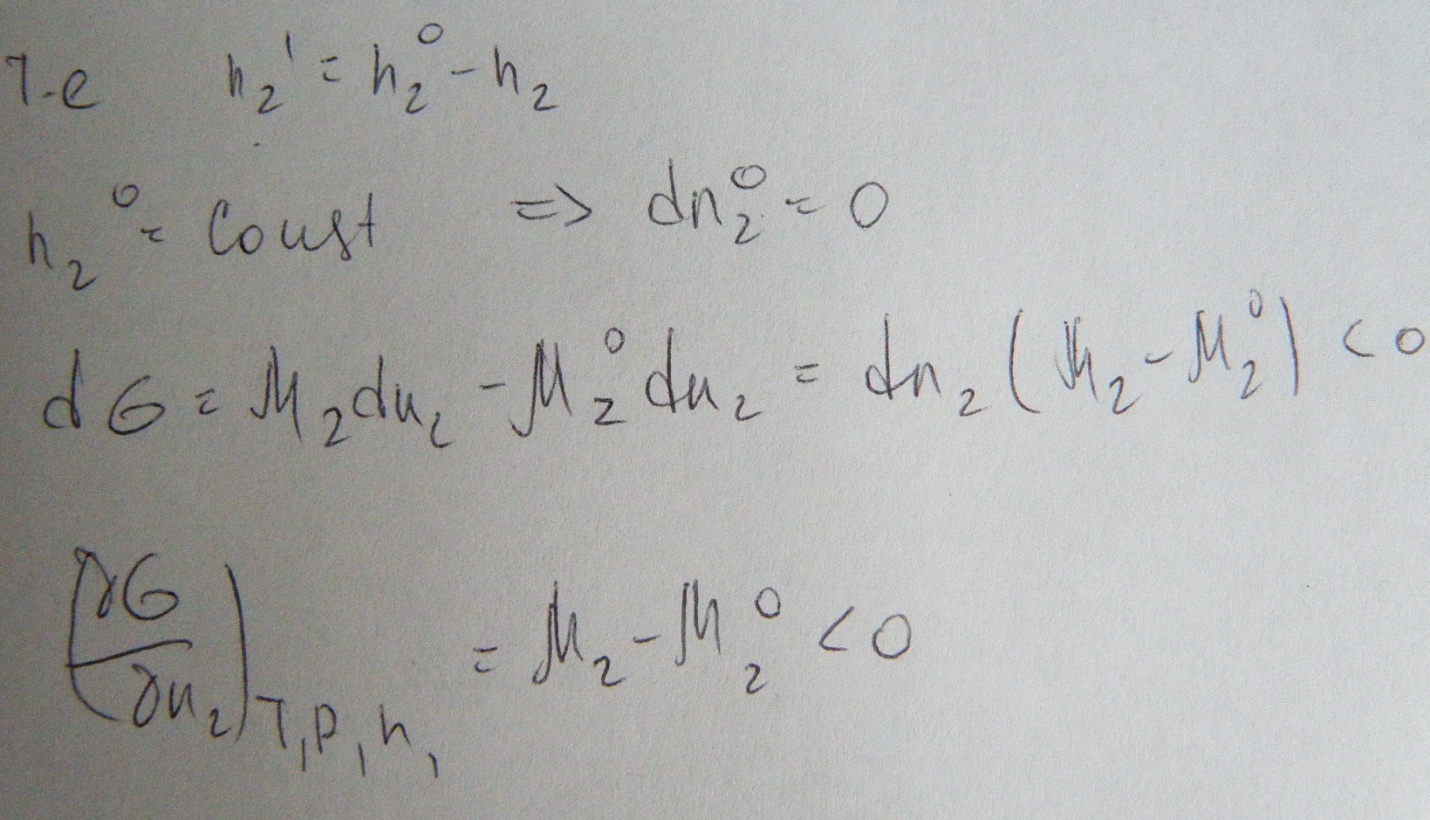 т.е n₂' = n₂⁰ - n₂
n₂⁰ = Const => dn₂⁰ = 0
dG = μ₂dn₂ - μ₂⁰dn₂ = dn₂(μ₂ - μ₂⁰) < 0
(∂G/∂n₂)T,P,n₁ = μ₂ - μ₂⁰ < 0